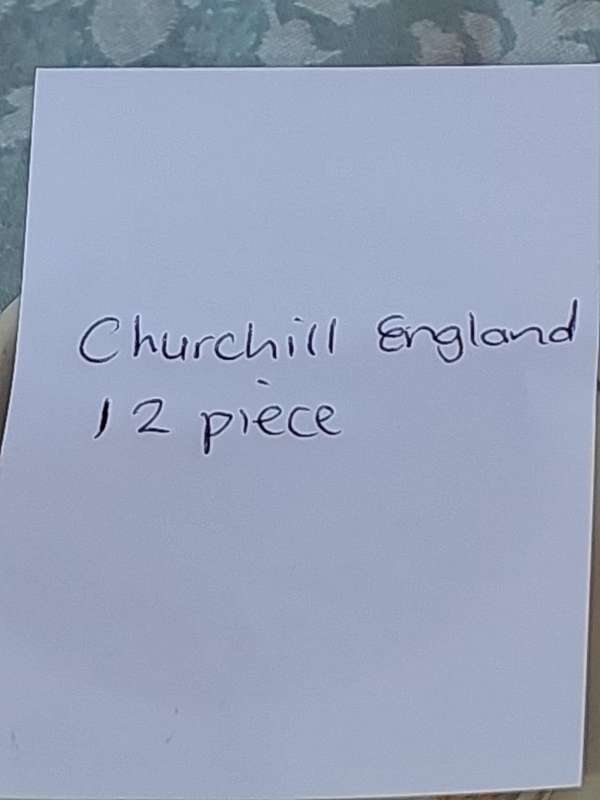 Churchill England
12 piece